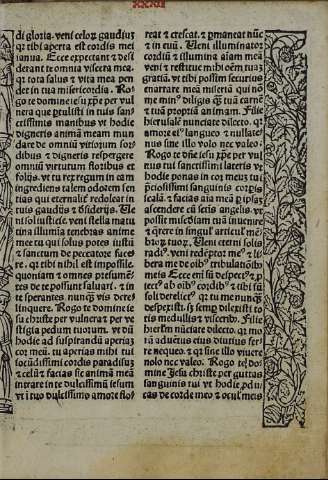 XXXIX
di gloria. veni celorū gaudiuʒ
qꝛ tibi aperta est cordis mei
ianua. Ecce expectant ⁊ desi
derant te omnia viscera mea.
qꝛ tota salus ⁊ vita mea pen
det in tua misericordia. Ro
go te domine iesu xp̄e per vul
nera que ptulisti in tuis san
ctissimis manibus vt hodie
digneris animā meam mun
dare de omniū vitiorum sor
dibus ⁊ digneris respergere
omniū virtutum floribus et
foliis. vt tu rex regum in eam
ingrediens talem odorem sen
tias qui eternalr̄ redoleat in
tuis gaudiis ⁊ desiderijs. Ue
ni sol iusticie. veni stella matu
tina illumīa tenebras anime
mee tu qui solus potes iustū
⁊ sanctum de peccatore face
re. qꝛ tibi nihil est impossibile.
quoniam ⁊ omnes presumē
tes de te possunt saluari. ⁊ in
te sperantes nunqꝫ vis dere
linquere. Rogo te domine ie
su christe per vulnera ⁊ per ve
stigia pedum tuorum. vt dū
hodie ad suspirandū aperiaʒ
cor meū. tu aperias mihi tui
iocūdissimi cordis paradisuʒ
⁊ celū ⁊ facias sic animā meā
intrare in te dulcissimū iesum
vt ī tuo dulcissimo amore flo
reat ⁊ crescat. ⁊ pmaneat nūc
⁊ in euū. Ueni illuminator
cordiū ⁊ illumina aīam meā
veni ⁊ restitue mihi oēm tuā
gratiā. vt tibi possim securius
enarrare meā miseriā qui nō
me minꝰ diligis qꝫ tuā carnē
⁊ tuā propriā animam. Filie
hierusalē nunciate dilecto. qꝛ
amore ei langueo ⁊ nullate
nus sine illo volo nec valeo.
Rogo te dn̄e iesu xp̄e per vul
nus tui sanctissimi lateris vt
hodie ponas in cor meuʒ tui
p̄ciosissimi sanguinis corpis
scalā. ⁊ facias aīa meā p ip̄aʒ
ascendere cū setis angelis. vt
possit mediam tuā inuenire
⁊ q̄rere in singulˀ articulˀ mē
brorʒ tuorʒ. Ueni eterni solis
radiˀ. veni redēptor meˀ ⁊ li
bera me de oībˀ tribulatōibˀ
meis Ecce eni sū despectˀ ⁊ p
iectˀ ab oībˀ cordibˀ ⁊ tibi sū
soli derelictˀ. qꝛ tu me nunqꝫ
despexisti. sʒ semp dilexisti to
tis medullis ⁊ viscerib̄. Filie
hierl̄m nūciate dilecto. qꝛ mo
rā aduētus eius diutius fer
re nequeo. ⁊ qꝛ sine illo viuere
nolo nec valeo. Rogo te dn̄
mine Jesu christe per guttas
sanguinis tui vt hodie. pdu
cas de corde meo ⁊ oculˀ meis